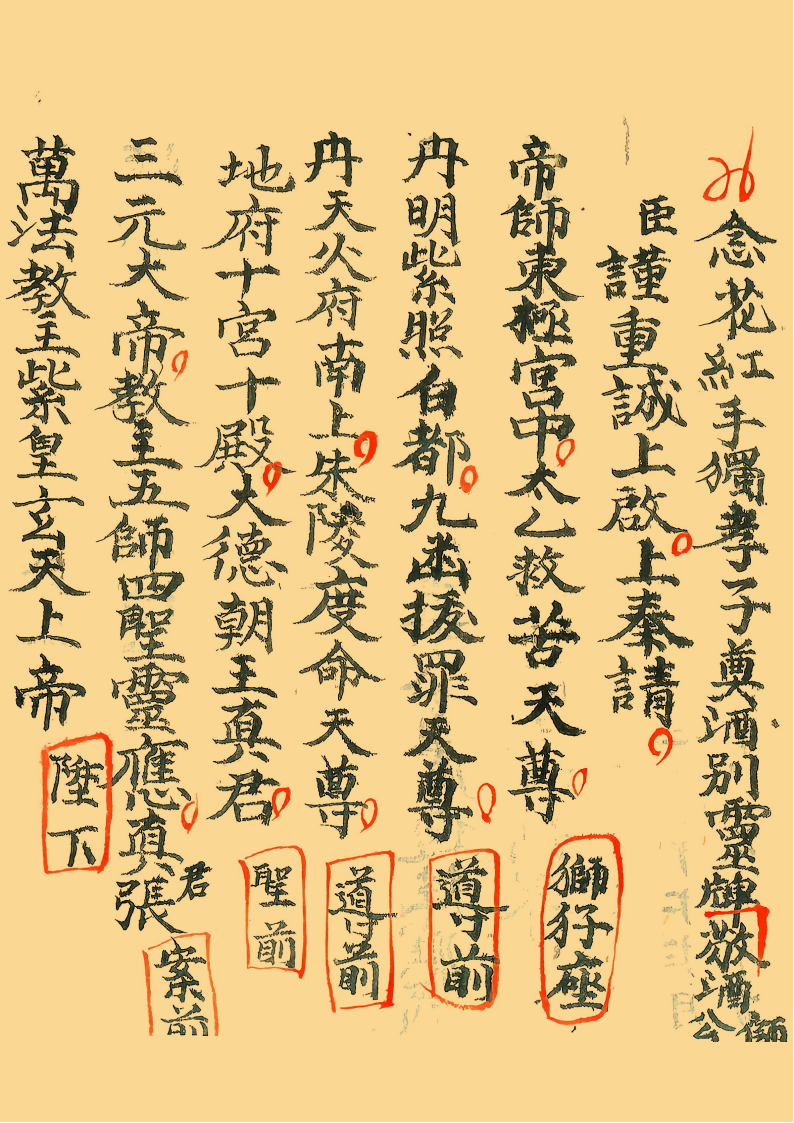 念花紅手獨孝子奠酒別靈䡖敬酒公師
臣謹重誠上啟上奏請
帝師東極宮中太乙救苦天尊獅犴座
丹明紫照白都九幽拔罪天尊導前
丹天火府南上朱陵度命天尊導前
地府十宮十殿大德朝王真君聖前
三元大帝教主五師四聖靈應真君張案前
萬法教主紫皇玄天上帝陛下